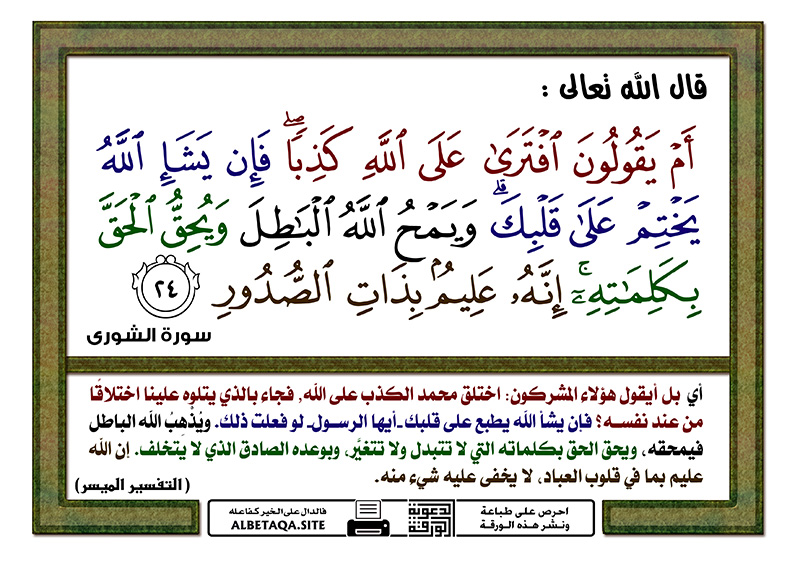 قال الله تعالى :
أَمۡ يَقُولُونَ ٱفۡتَرَىٰ عَلَى ٱللَّهِ كَذِبٗاۖ فَإِن يَشَإِ ٱللَّهُ
يَخۡتِمۡ عَلَىٰ قَلۡبِكَۗ وَيَمۡحُ ٱللَّهُ ٱلۡبَٰطِلَ وَيُحِقُّ ٱلۡحَقَّ
بِكَلِمَٰتِهِۦٓۚ إِنَّهُۥ عَلِيمُۢ بِذَاتِ ٱلصُّدُورِ ٢٤
سورة الشورى
أي بل أيقول هؤلاء المشركون: اختلق محمد الكذب على الله, فجاء بالذي يتلوه علينا اختلاقًا
من عند نفسه؟ فإن يشأ الله يطبع على قلبك ـ أيها الرسول ـ لو فعلت ذلك. ويُذْهِبُ الله الباطل
فيمحقه، ويحق الحق بكلماته التي لا تتبدل ولا تتغيَّر، وبوعده الصادق الذي لا يتخلف. إن الله
عليم بما في قلوب العباد، لا يخفى عليه شيء منه.
( التفسير الميسر)
احرص على طباعة
ونشر هذه الورقة
الدعوية
الورقة
فالدال على الخير كفاعله
ALBETAQA.SITE